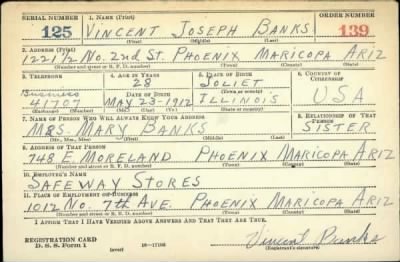 SERIAL NUMBER 1. NAME (Print) ORDER NUMBER
125 VINCENT JOSEPH BANKS 139
(First) (Middle) (Last)
2. ADDRESS (Print)
1221 1/2 NO. 2nd ST. PHOENIX MARICOPA ARIZ
(Number and street or R. F. D. number) (Town) (County) (State)
3. TELEPHONE 4. AGE IN YEARS 5. PLACE OF BIRTH 6. COUNTRY OF CITIZENSHIP
Business 28 JOLIET
DATE OF BIRTH (Town or county)
41707 MAY 23-1912 ILLINOIS USA
(Mo.) (Day) (Yr.) (State or country)
7. NAME OF PERSON WHO WILL ALWAYS KNOW YOUR ADDRESS 8. RELATIONSHIP OF THAT PERSON
MRS. MARY BANKS SISTER
(Mr., Mrs., Miss) (First) (Middle) (Last)
9. ADDRESS OF THAT PERSON
748 E. MORELAND PHOENIX MARICOPA ARIZ
(Number and street or R. F. D. number) (Town) (County) (State)
10. EMPLOYER'S NAME
SAFEWAY STORES
11. PLACE OF EMPLOYMENT OR BUSINESS
1012 NO. 7th AVE. PHOENIX MARICOPA ARIZ
(Number and street or R. F. D. number) (Town) (County) (State)
I AFFIRM THAT I HAVE VERIFIED ABOVE ANSWERS AND THAT THEY ARE TRUE.
REGISTRATION CARD
D. S. S. Form 1 (over) Vincent Banks
(Registrant's signature)